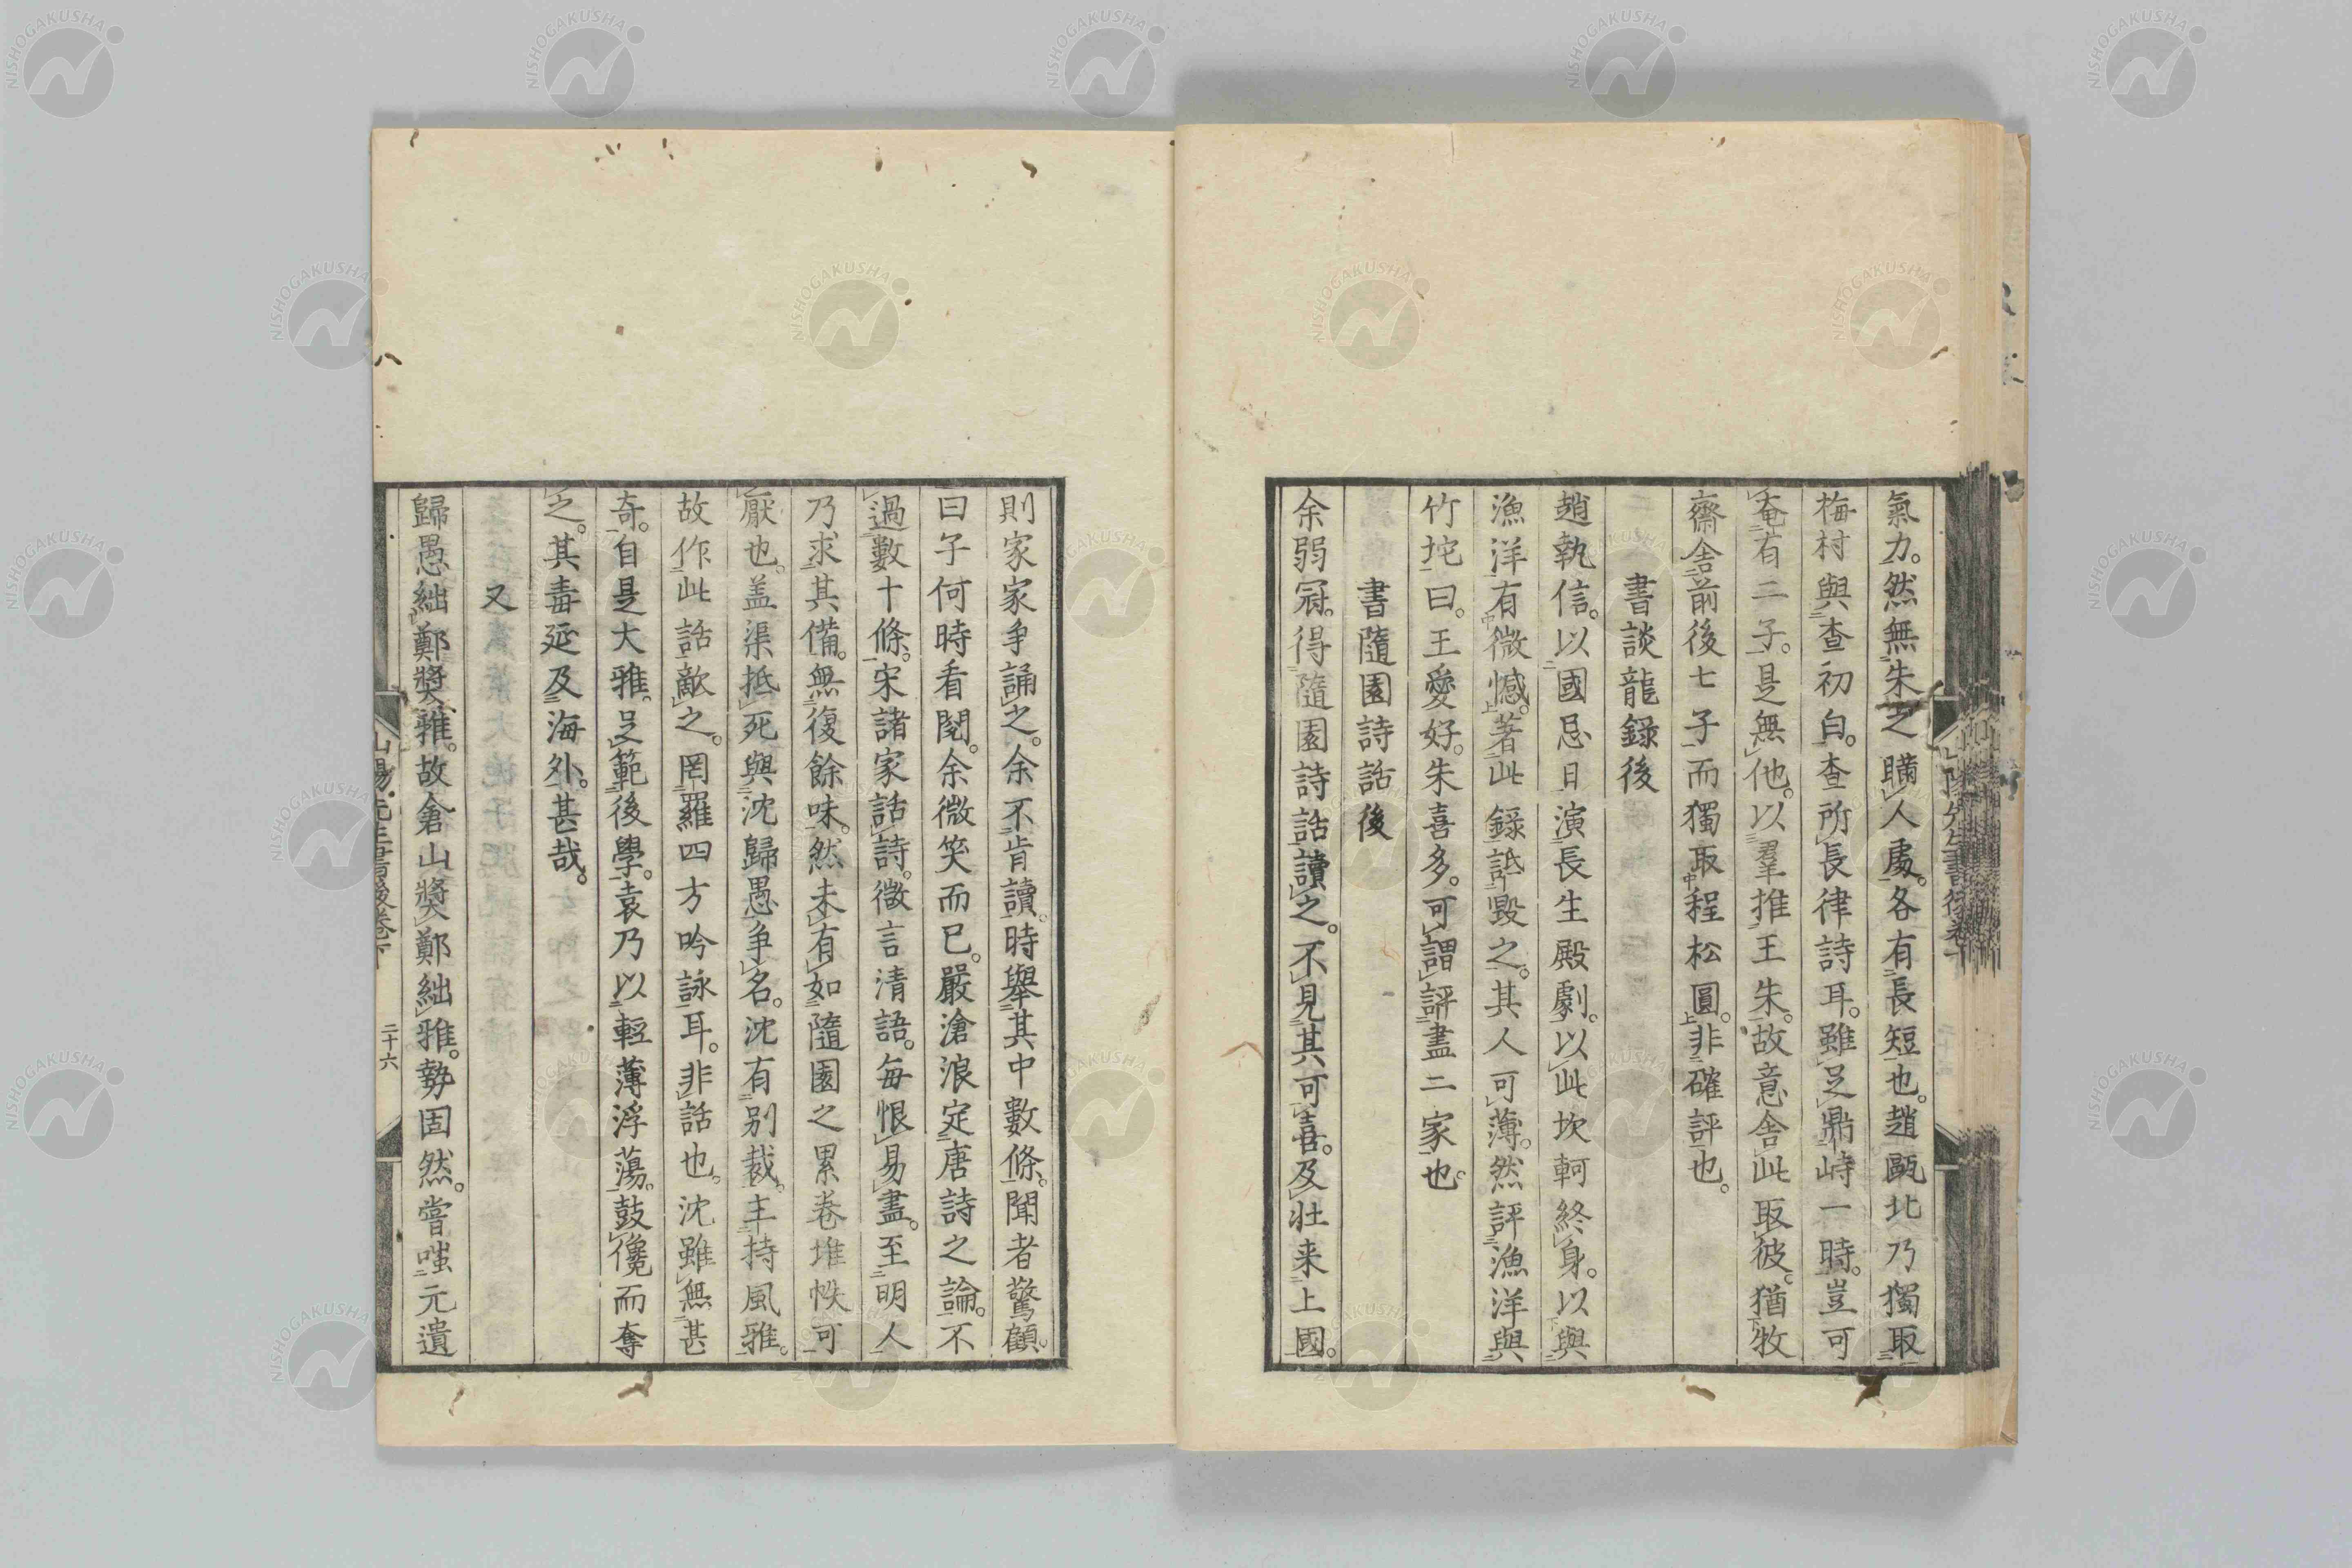 氣力。然無朱之曠人處。各有長短也。趙甌北乃獨取
梅村與查初白。查所長律詩耳。雖足鼎峙一時。豈可
奄有二子。是無他。以羣推王朱。故意舍此取彼。猶牧
齋舍前後七子而獨取程松圓。非確評也。
書談龍錄後
趙執信。以國忌日演長生殿劇。以此坎軻終身。以與
漁洋有微憾。著此錄詆毀之。其人可薄。然評漁洋與
竹垞曰。王愛好。朱喜多。可謂評盡二家也。
書隨園詩話後
余弱冠。得隨園詩話讀之。不見其可喜。及壯来上國。
則家家爭誦之。余不肯讀。時舉其中數條。聞者驚顧。
曰子何時看閱。余微笑而已。嚴滄浪定唐詩之論。不
過數十條。宋諸家話詩。微言清語。每恨易盡。至明人
乃求其備。無復餘味。然未有如隨園之累卷堆帙可
厭也。盖渠抵死與沈歸愚爭名。沈有別裁。主持風雅。
故作此話敵之。罔羅四方吟詠耳。非話也。沈雖無甚
奇。自是大雅。足範後學。袁乃以輕薄浮蕩。鼓儳而奪
之。其毒延及海外。甚哉。
又
歸愚絀鄭奬雅。故倉山奬鄭絀雅。勢固然。嘗嗤元遺
山陽先生書後卷下
二十六
NISHOGAKUSHA